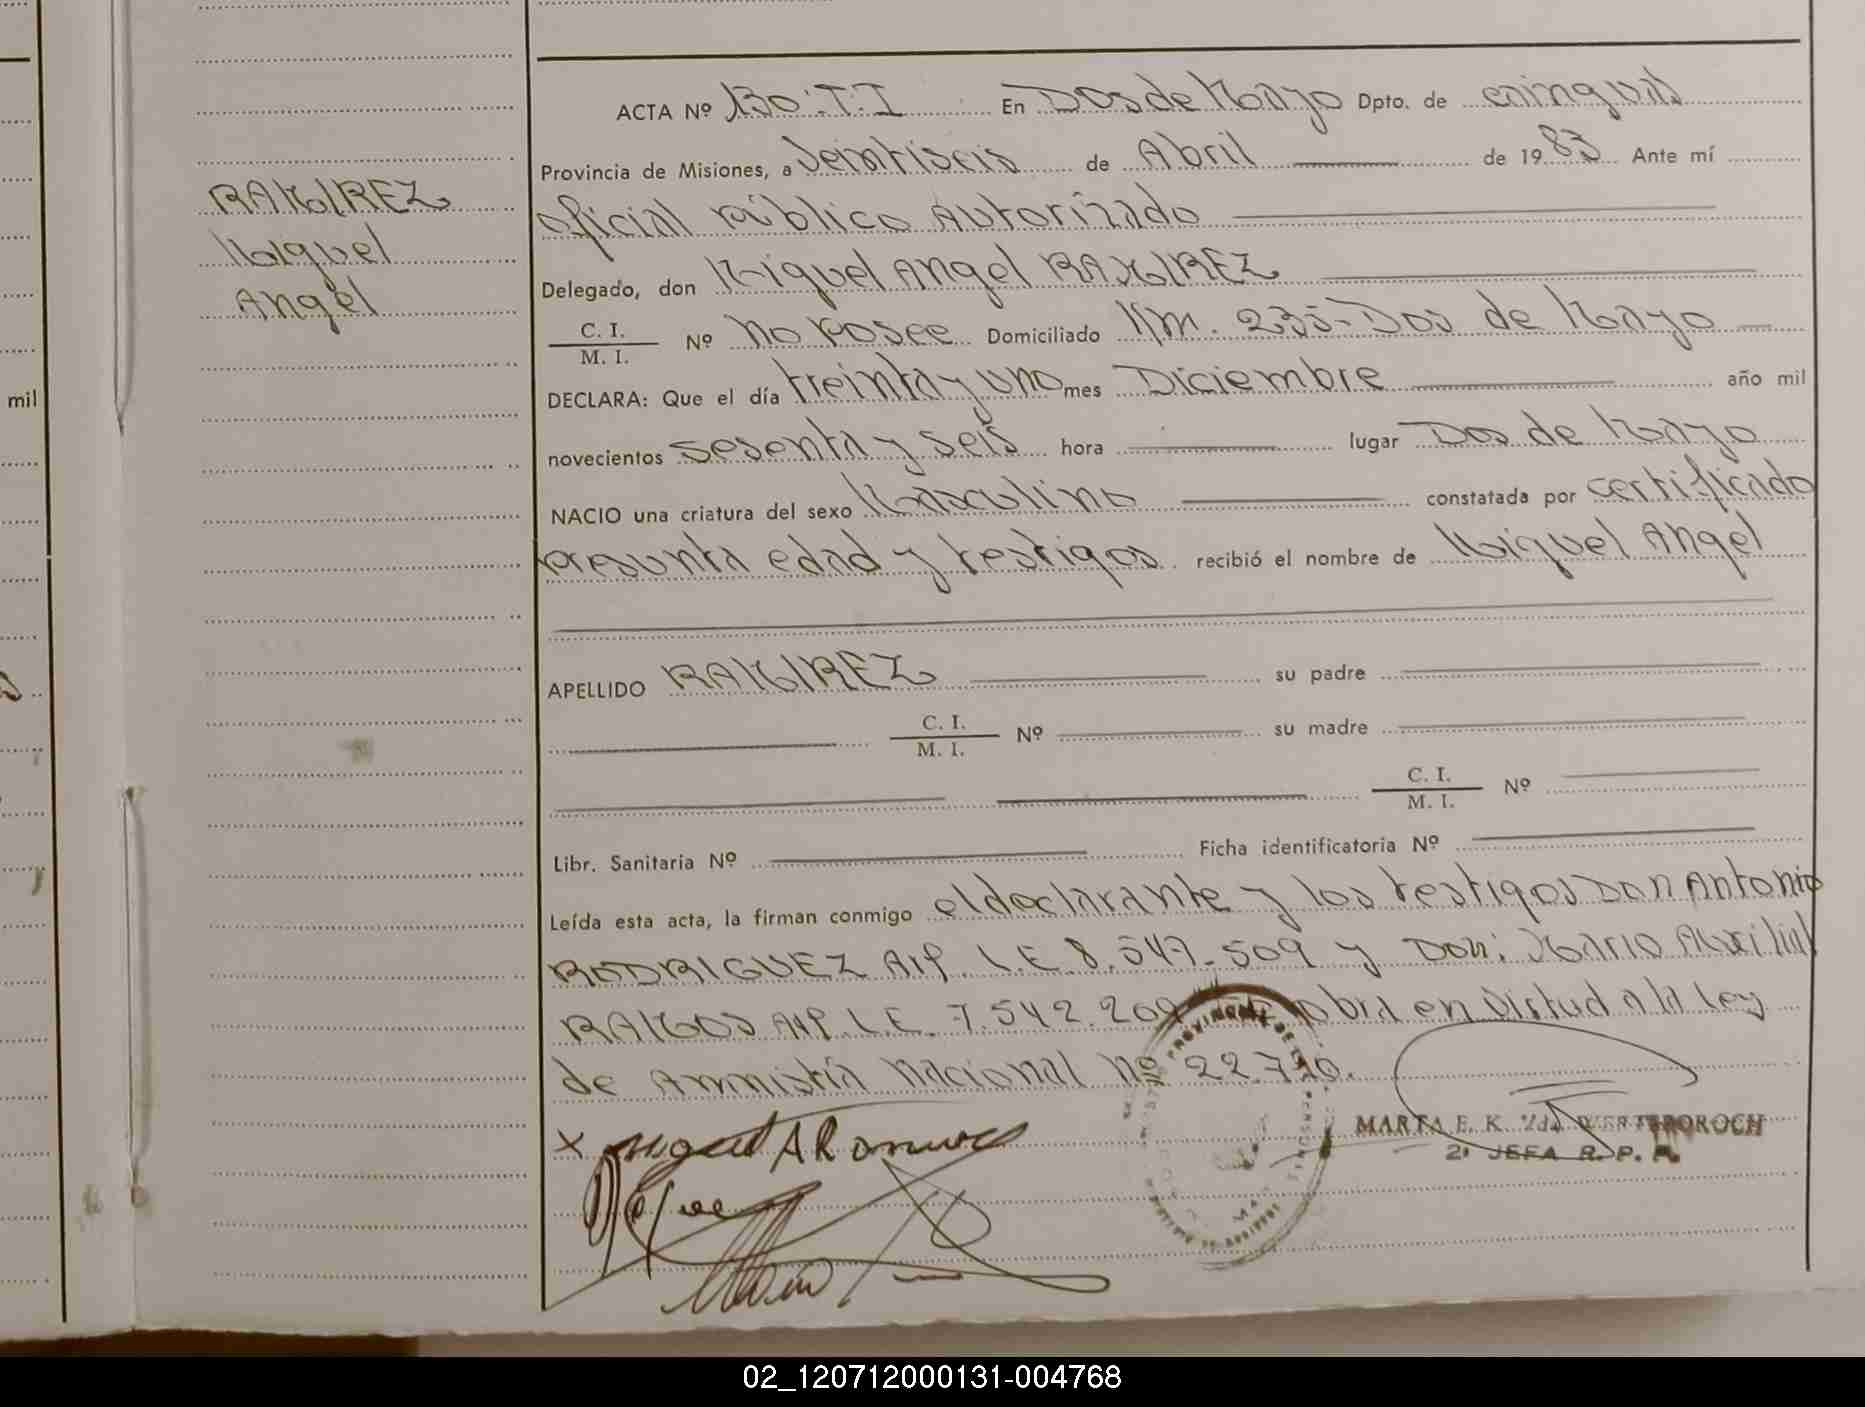 mil
RAMIREZ
Miguel
Angel
ACTA Nº 130:T:I En Dos de Mayo Dpto. de
Provincia de Misiones, a Veintiseis de Abril de 1983 Ante mí
oficial Público Autorizado
Delegado, don Miguel Angel RAMIREZ
C. I.
M. I. Nº No Posee Domiciliado Km. 235-Dos de Mayo
DECLARA: Que el día treinta y uno mes Diciembre año mil
novecientos sesenta y seis hora lugar Dos de Mayo
NACIO una criatura del sexo Masculino constatada por certificado
presunta edad y testigos recibió el nombre de Miguel Angel
APELLIDO RAMIREZ su padre
C. I.
M. I. Nº su madre
C. I.
M. I. Nº
Libr. Sanitaria Nº Ficha identificatoria Nº
Leída esta acta, la firman conmigo el declarante y los testigos Don Antonio
RODRIGUEZ Arg. L.E. 8.547.509 y Don: Mario Auxilial
RAMOS Arg. L.E. 7.542.209 labra en Virtud a la Ley
de Amnistía Nacional Nº 22.710.
MARTA E. K. Vda.
2ª JEFA R. P.
PROVINCIA DE
02_120712000131-004768